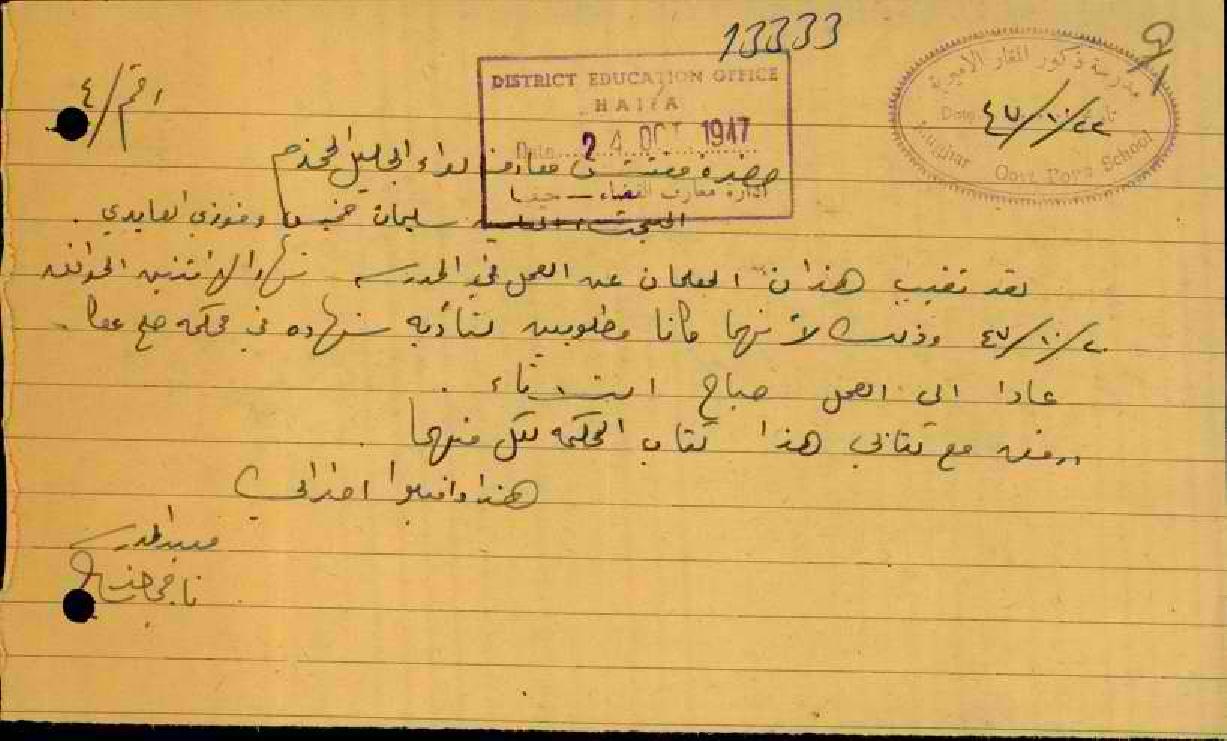 13333
DISTRICT EDUCATION OFFICE
HAIFA
Date 24 OCT 1947
ادارة معارف القضاء - حيفا
مدرسة ذكور المغار الاميرية
Date ٤٧/١٠/٢٢
Mughar Govt Boys School
رقم/٤
حضرة مفتش معارف لواء الجليل المحترم
سليمان خميس وفوزي العايدي .
لقد تغيب هذان المعلمان عن العمل في المدرسة نهار الاثنين الموافق
٤٧/١٠/٢٠ وذلك لأنهما كانا مطلوبين لتأدية شهادة في محكمة صلح عكا .
عادا الى العمل صباح الثلاثاء .
ارفق مع كتابي هذا كتاب المحكمة لكل منهما .
هذا واقبلوا احترامي
مدير المدرسة